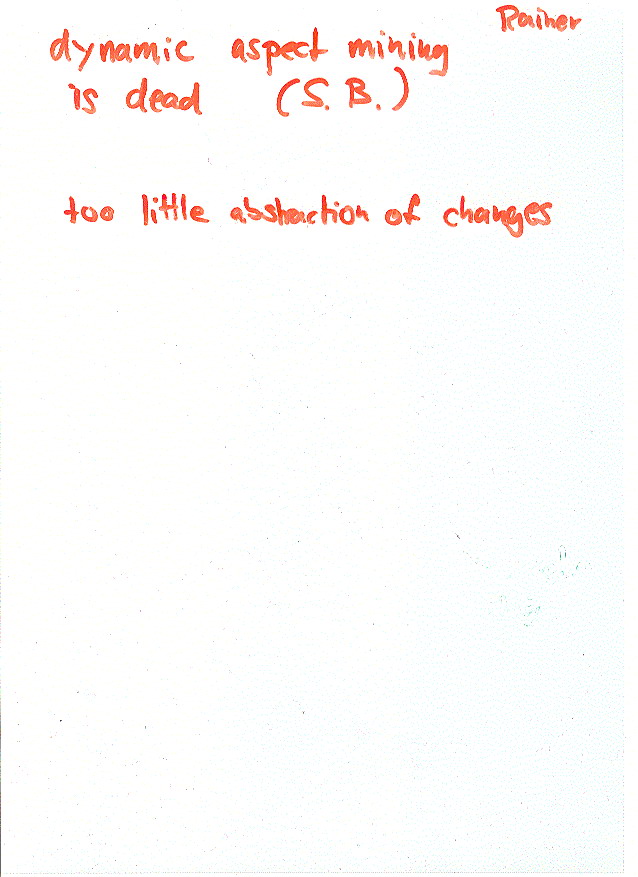 Rainer
dynamic aspect mining
is dead (S. B.)
too little abstraction of changes